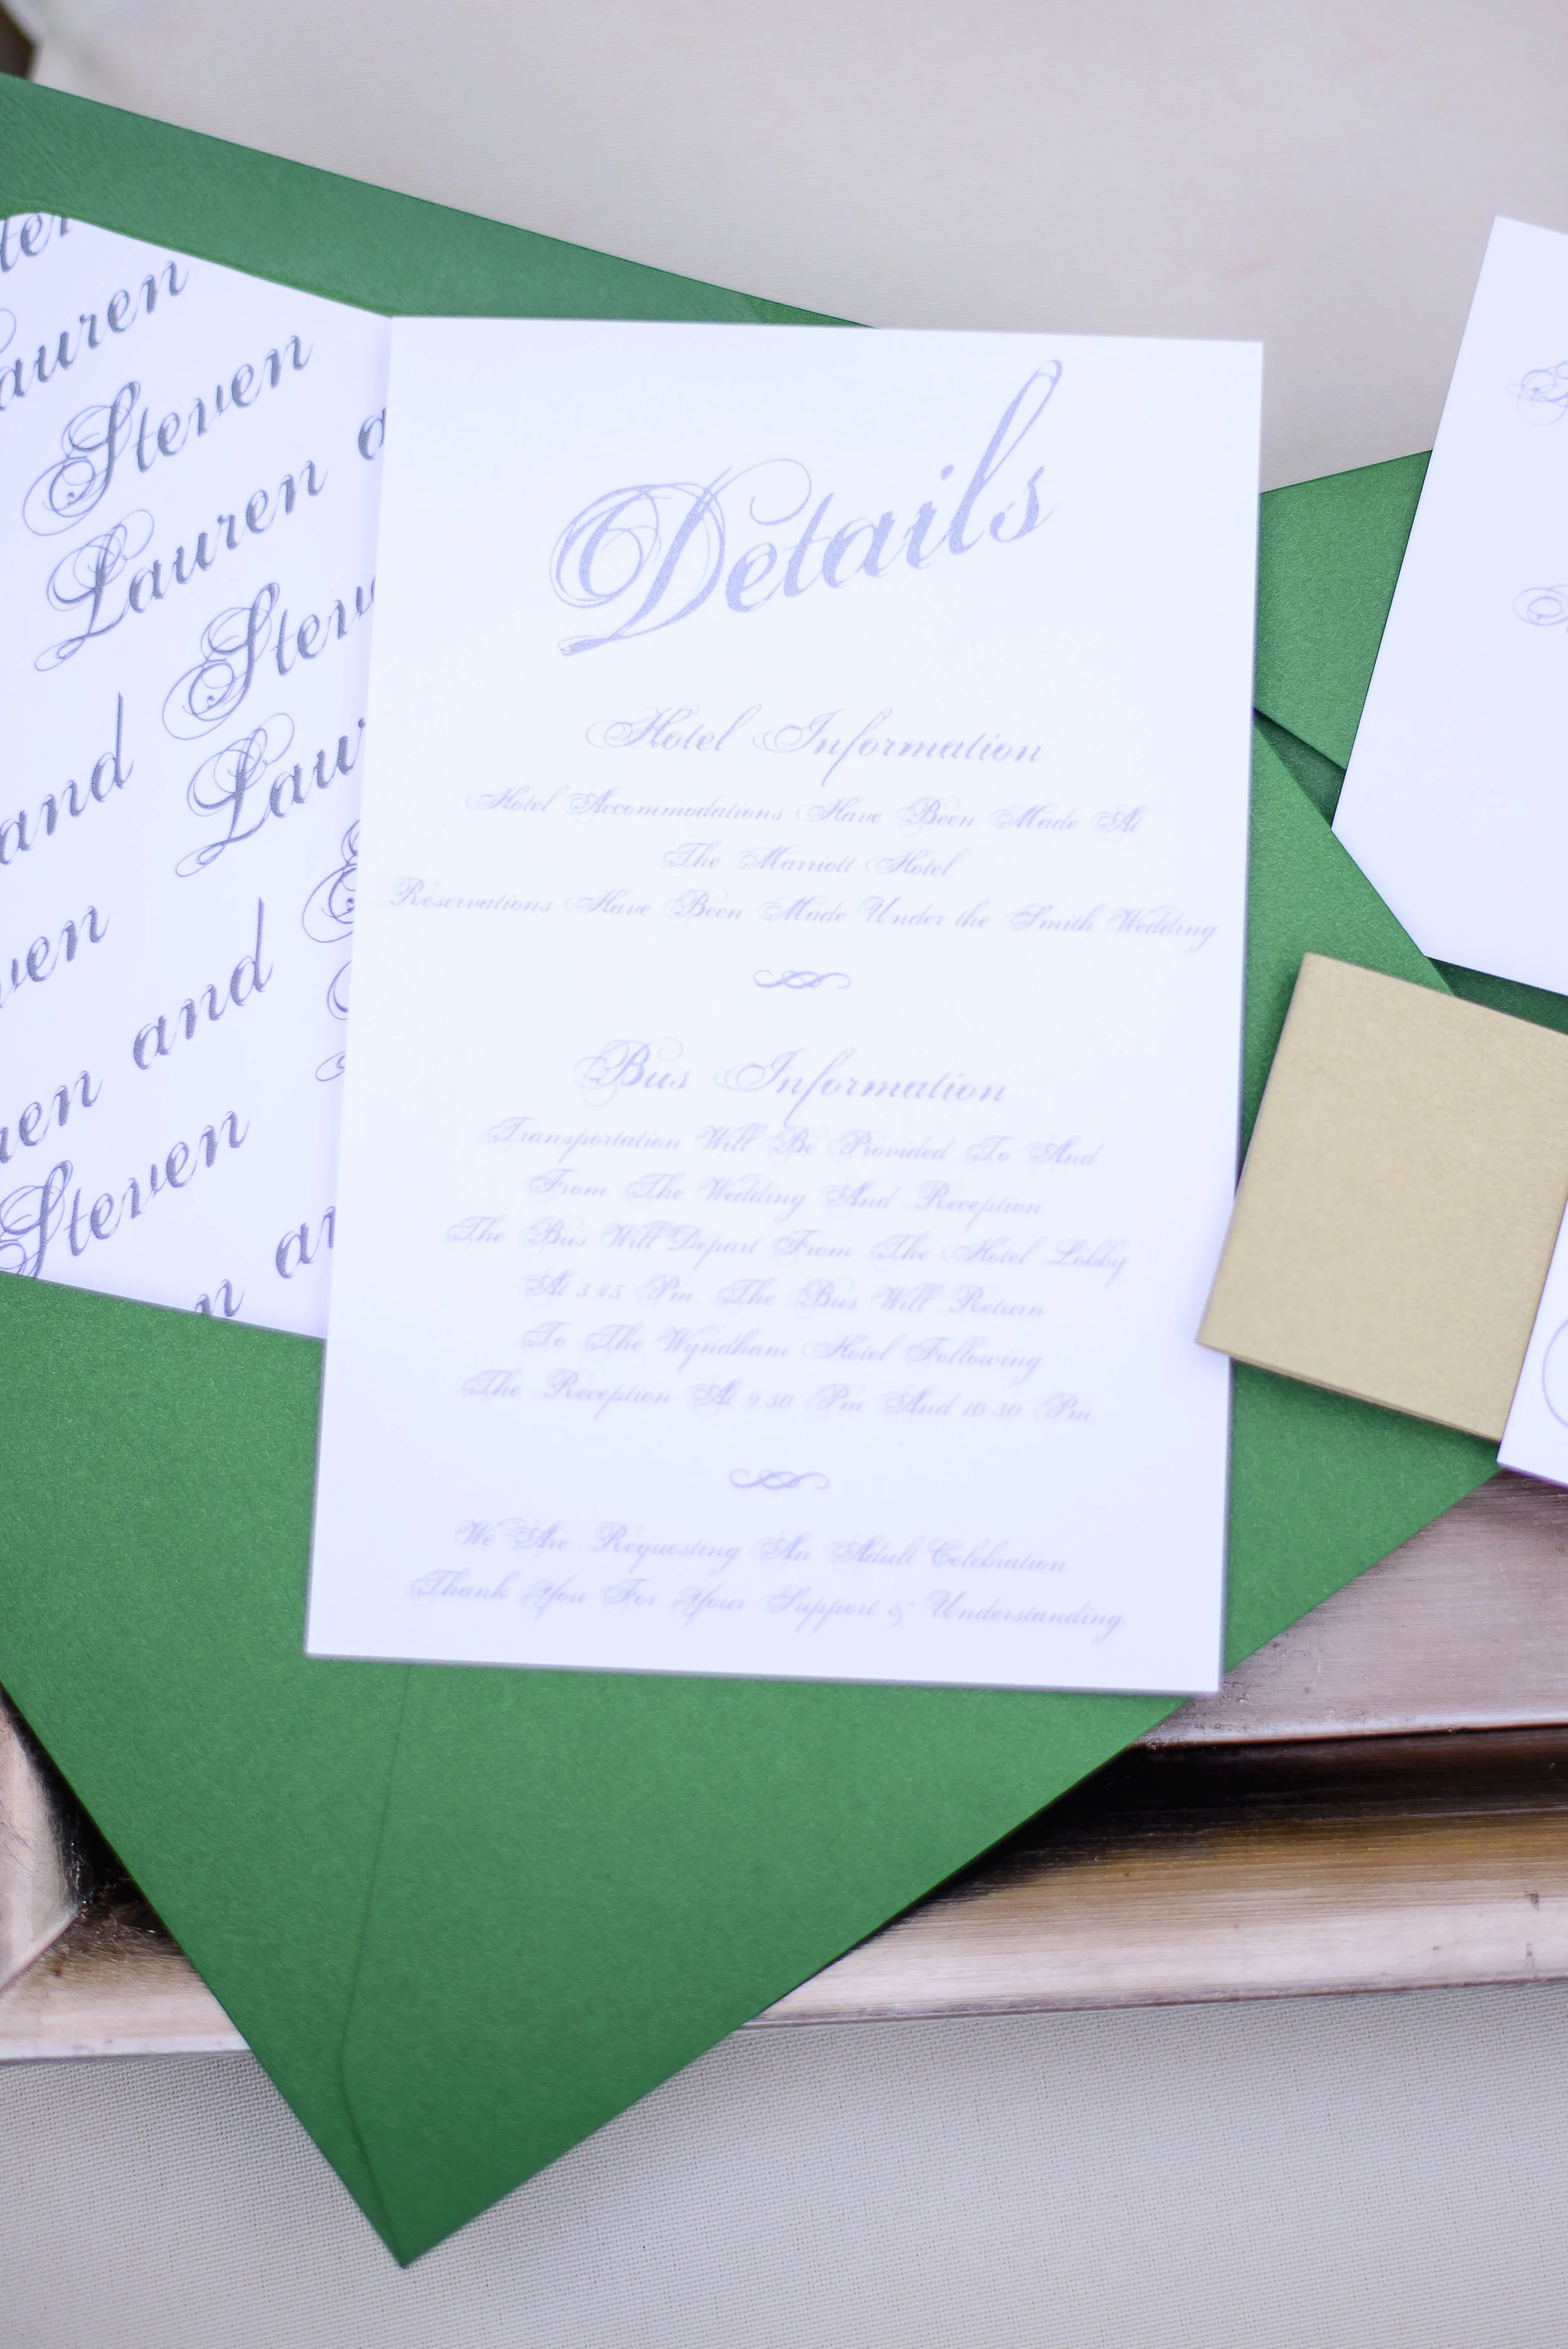 Lauren
Steven
Lauren
and Steven
and
Steven
Details
Hotel Information
Hotel Accommodations Have Been Made At
The Marriott Hotel
Reservations Have Been Made Under the Smith Wedding
Bus Information
Transportation Will Be Provided To And
From The Wedding And Reception
The Bus Will Depart From The Hotel Lobby
At 3:45 Pm The Bus Will Return
To The Wyndham Hotel Following
The Reception At 9:30 Pm And 10:30 Pm
We Are Requesting An Adult Celebration
Thank You For Your Support & Understanding